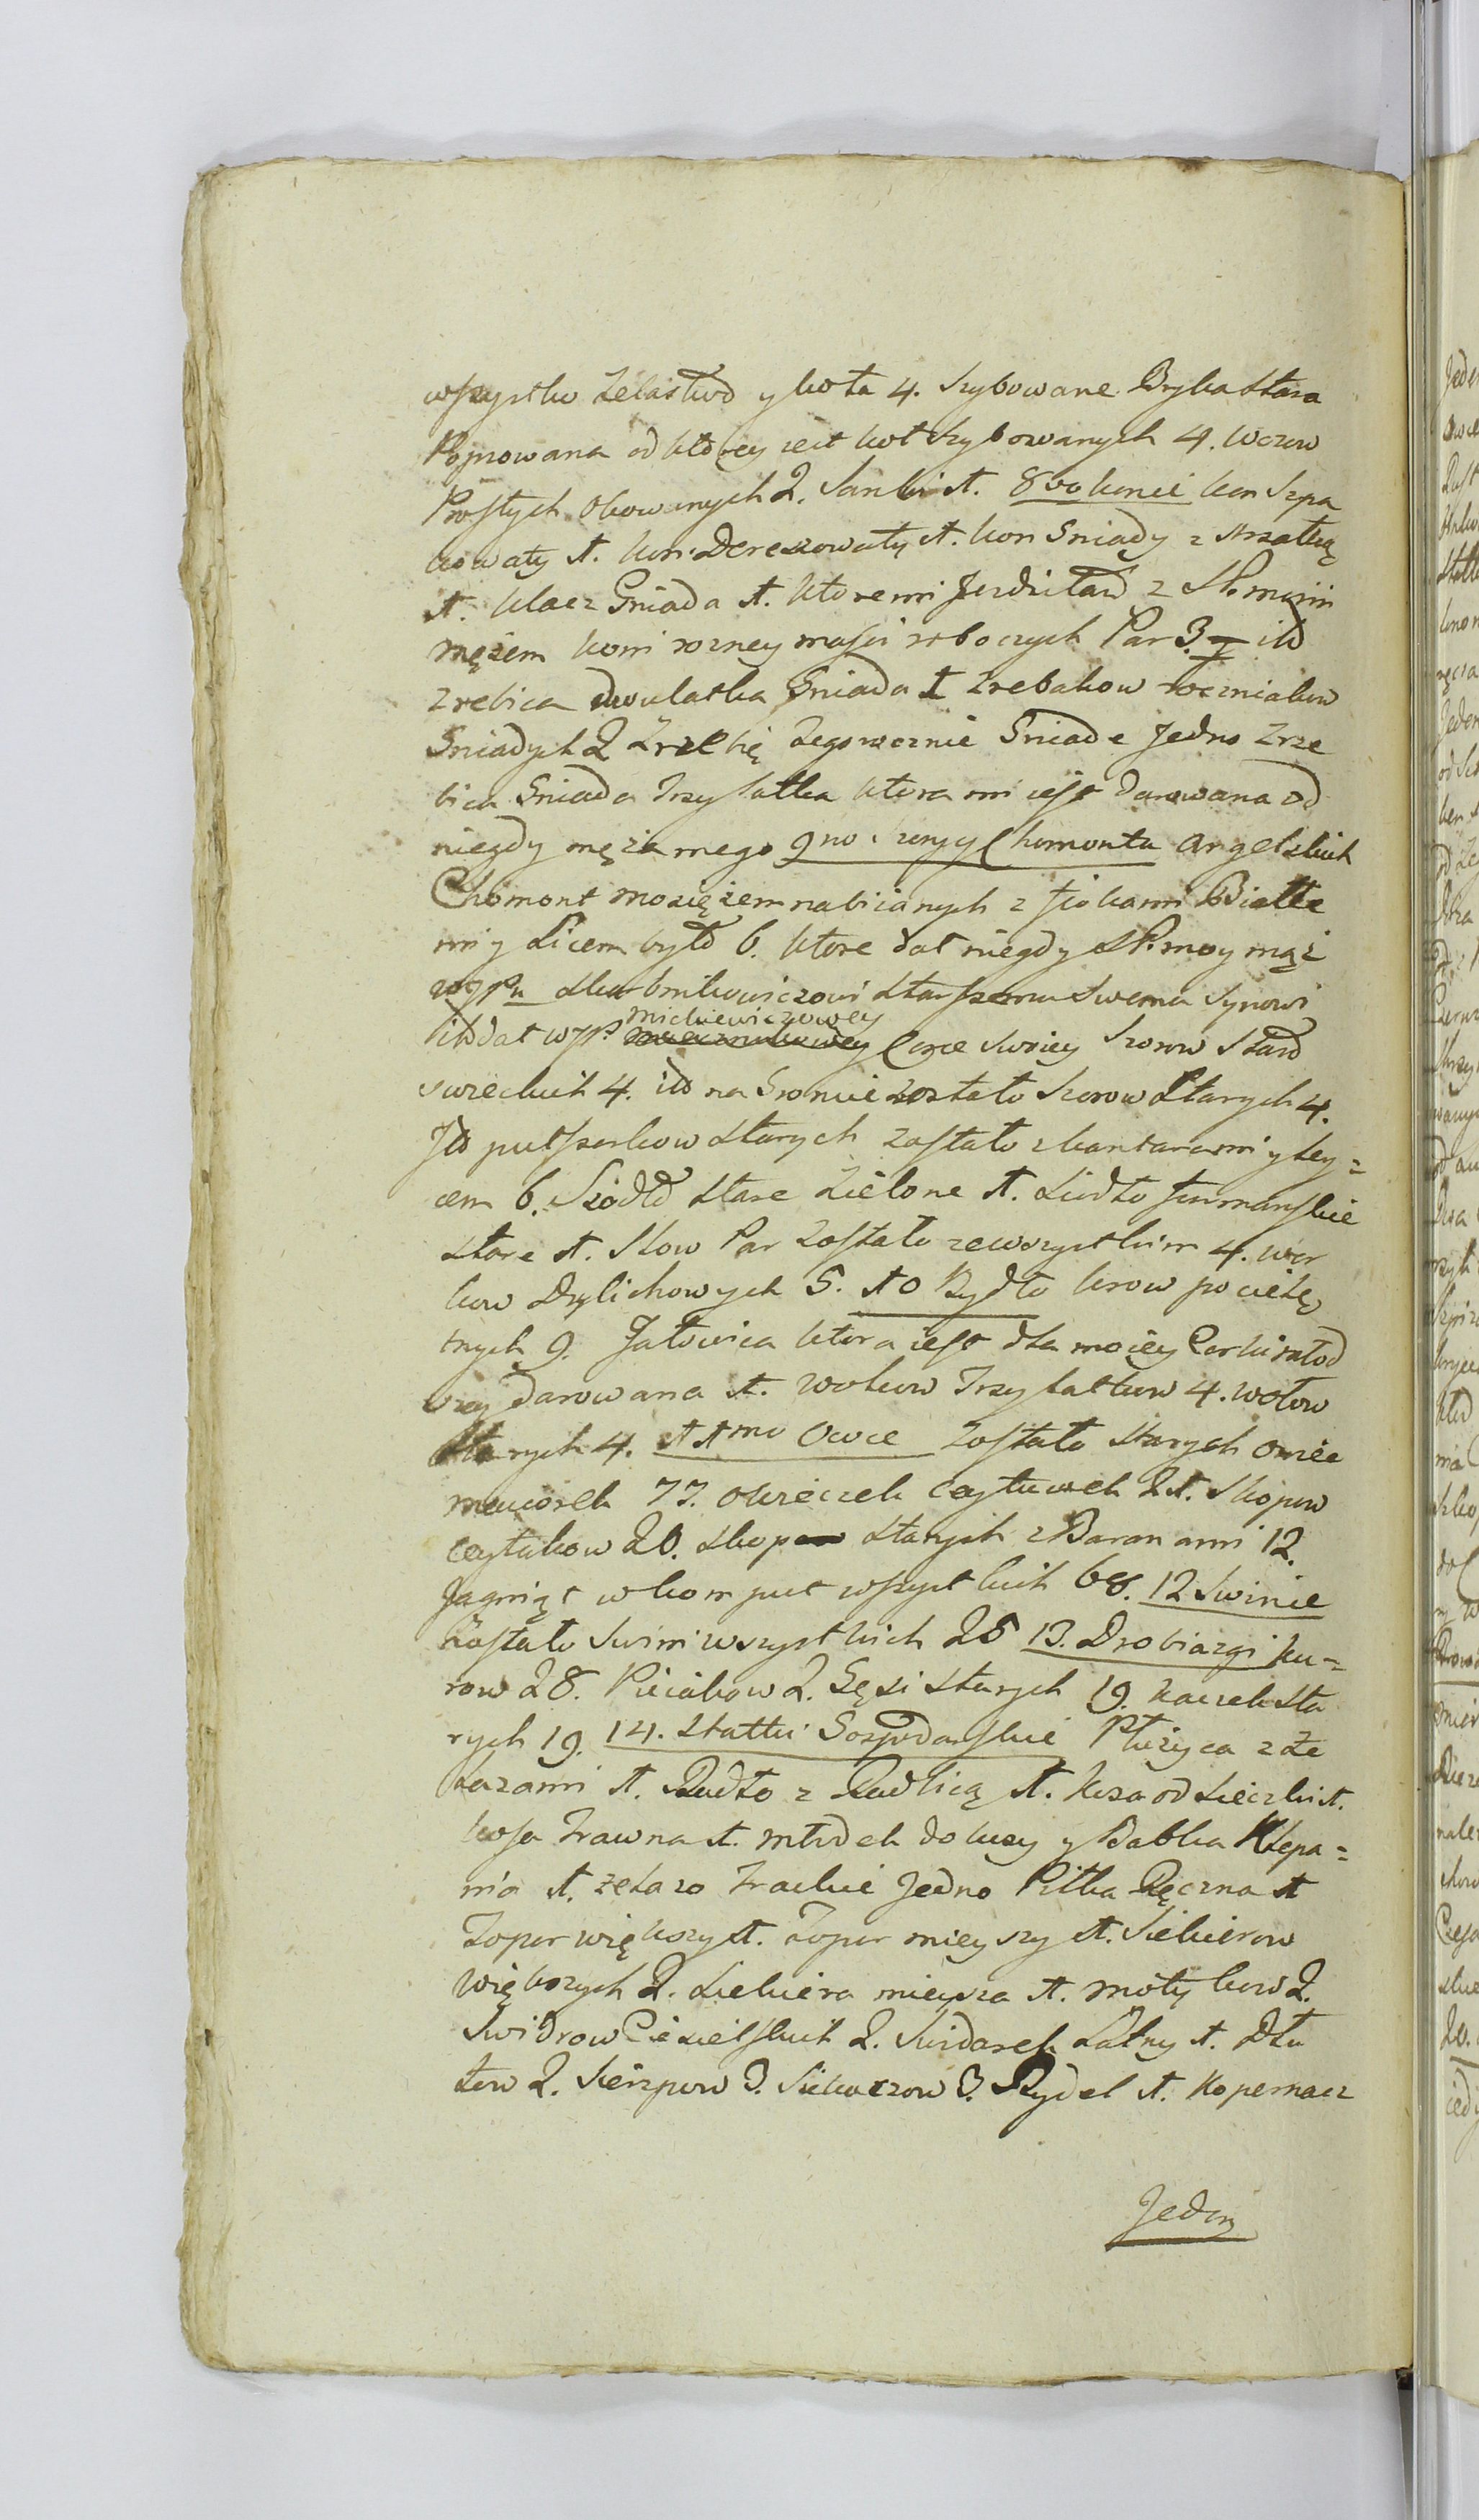 wszystko żelastwo y koła 4. szybowane Bryka stara
Pojnowana od którey jest koł szybowanych 4. wozow
Prostych Okowanych 2. Sanki 1. 8vo konie kon Szpa
kowaty 1. kon Dereszowaty 1. kon Gniady z strzałką
1. klacz Gniada 1. ktoremi Jezdziłam z SP. moim
mężem koni rozney maści roboczych Par 3. ito
zrebica dwulatka Gniada 1 Zrebakow roczniakow
Gniadych 2 Zrzebię tegoroczne Gniade Jedno Zrze
bica Gniada Trzylatka ktora mi jest darowana od
niegdy męża mego 9no Szory y Chomonta Angelskich
Chomont mosiężem nabicanych z Białe
mi y Licem było 6. ktore dał niegdy SP. moy mąż
WJPu starszemu Swemu Synowi
ito dał WJP. Mickiewiczowey Corce swoiey Szorow staro
swieckich 4. ito na Gronie zostało Szorow Starych 4.
Ito pułszorkow starych zostało z kantarami y Ley=
cem 6. Siodło stare Zielone 1. Siodło furmanskie
stare 1. Slow Par Zostało zewszystkim 4. wor
kow Drylichowych 5. 10 Bydło krow pocielę
tnych 9. Jałowica ktora jest dla moiey Corki młod
szey Darowana 1. wołow Trzylatkow 4. wołow
starych 4. 11mo Owce zostało starych owiec
maciorek 77. owieczek Caytuwek 21. Skopow
Caytukow 20. skopow starych z Baranami 12.
Jagniąt w komput wszystkich 68. 12 Swinie
Zostało Swini wszystkich 25 13. Drobiazgi ku=
row 28. Pieiakow 2. Gęsi starych 19. kaczek sta
rych 19. 14. Statki Gospodarskie Płużyca z że
lazami 1. Radło z Radlicą 1. kosa od Sieczki 1.
kosa Trawna 1. młotek do kosy y Babka Klepa=
nia 1. żelazo Trackie Jedno Piłka Ręczna 1
Topor większy 1. Topor mieyszy 1. Siekierow
większych 2. Siekiera mieysza 1. motykow 2.
Swidrow Ciesielskich 2. Swidorek Łatny 1. Dłu
tow 2. Sierpow 3. Siekaczow 3. Rydel 1. Kopernacz
Jeden